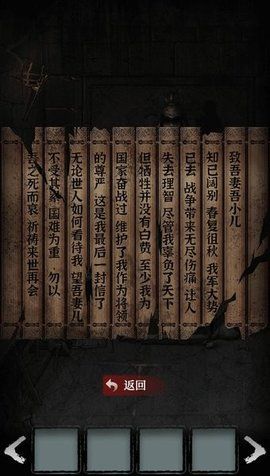 致吾妻吾小儿
知已阔别 春夏徂秋 我军大势
已去 战争带来无尽伤痛 让人
失去理智 尽管我辜负了天下
但牺牲并没有白费 至少我为
国家奋战过 维护了我作为将领
的尊严 这是我最后一封信了
无论世人如何看待我 望吾妻儿
不受其累 国难为重 勿以
吾之死而哀 祈祷来世再会
返回